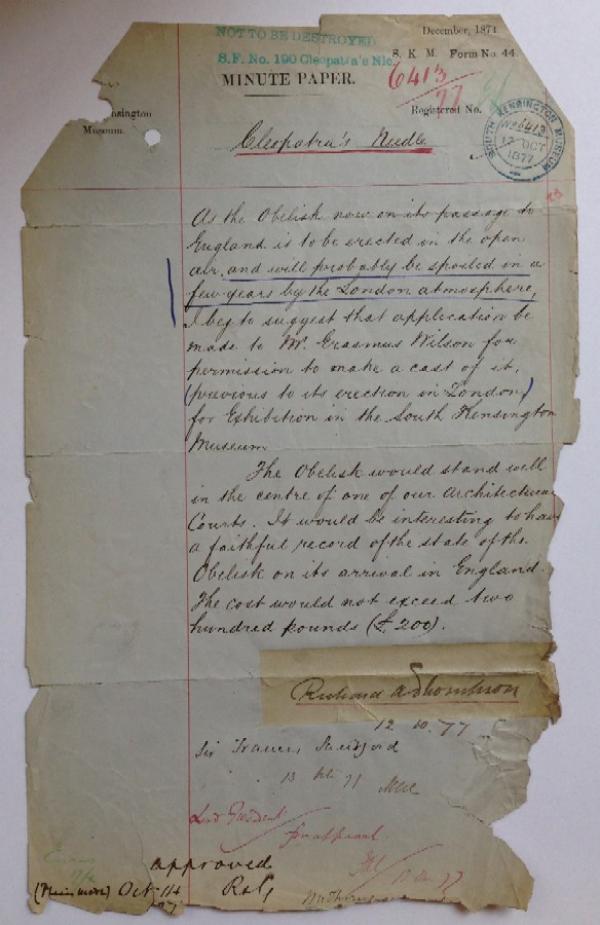 NOT TO BE DESTROYED
December, 1874
S.F. No. 190 Cleopatra's Nle
S. K. M. Form No. 44.
MINUTE PAPER.
6413
77
Registered No.
nsington
Museum.
SOUTH KENSINGTON MUSEUM
No 6413
12 OCT
1877
Cleopatra's Needle
As the Obelisk now on its passage to
England is to be erected in the open
air, and will probably be spoiled in a
few years by the London atmosphere,
I beg to suggest that application be
made to Mr. Erasmus Wilson for
permission to make a cast of it,
(previous to its erection in London)
for Exhibition in the South Kensington
Museum
The Obelisk would stand well
in the centre of one of our Architectural
Courts. It would be interesting to have
a faithful record of the state of the
Obelisk on its arrival in England.
The cost would not exceed two
hundred pounds (£200).
Richard A Thompson
12 10. 77
Sir Francis Sandford
13
Lord President
approved
Oct 14